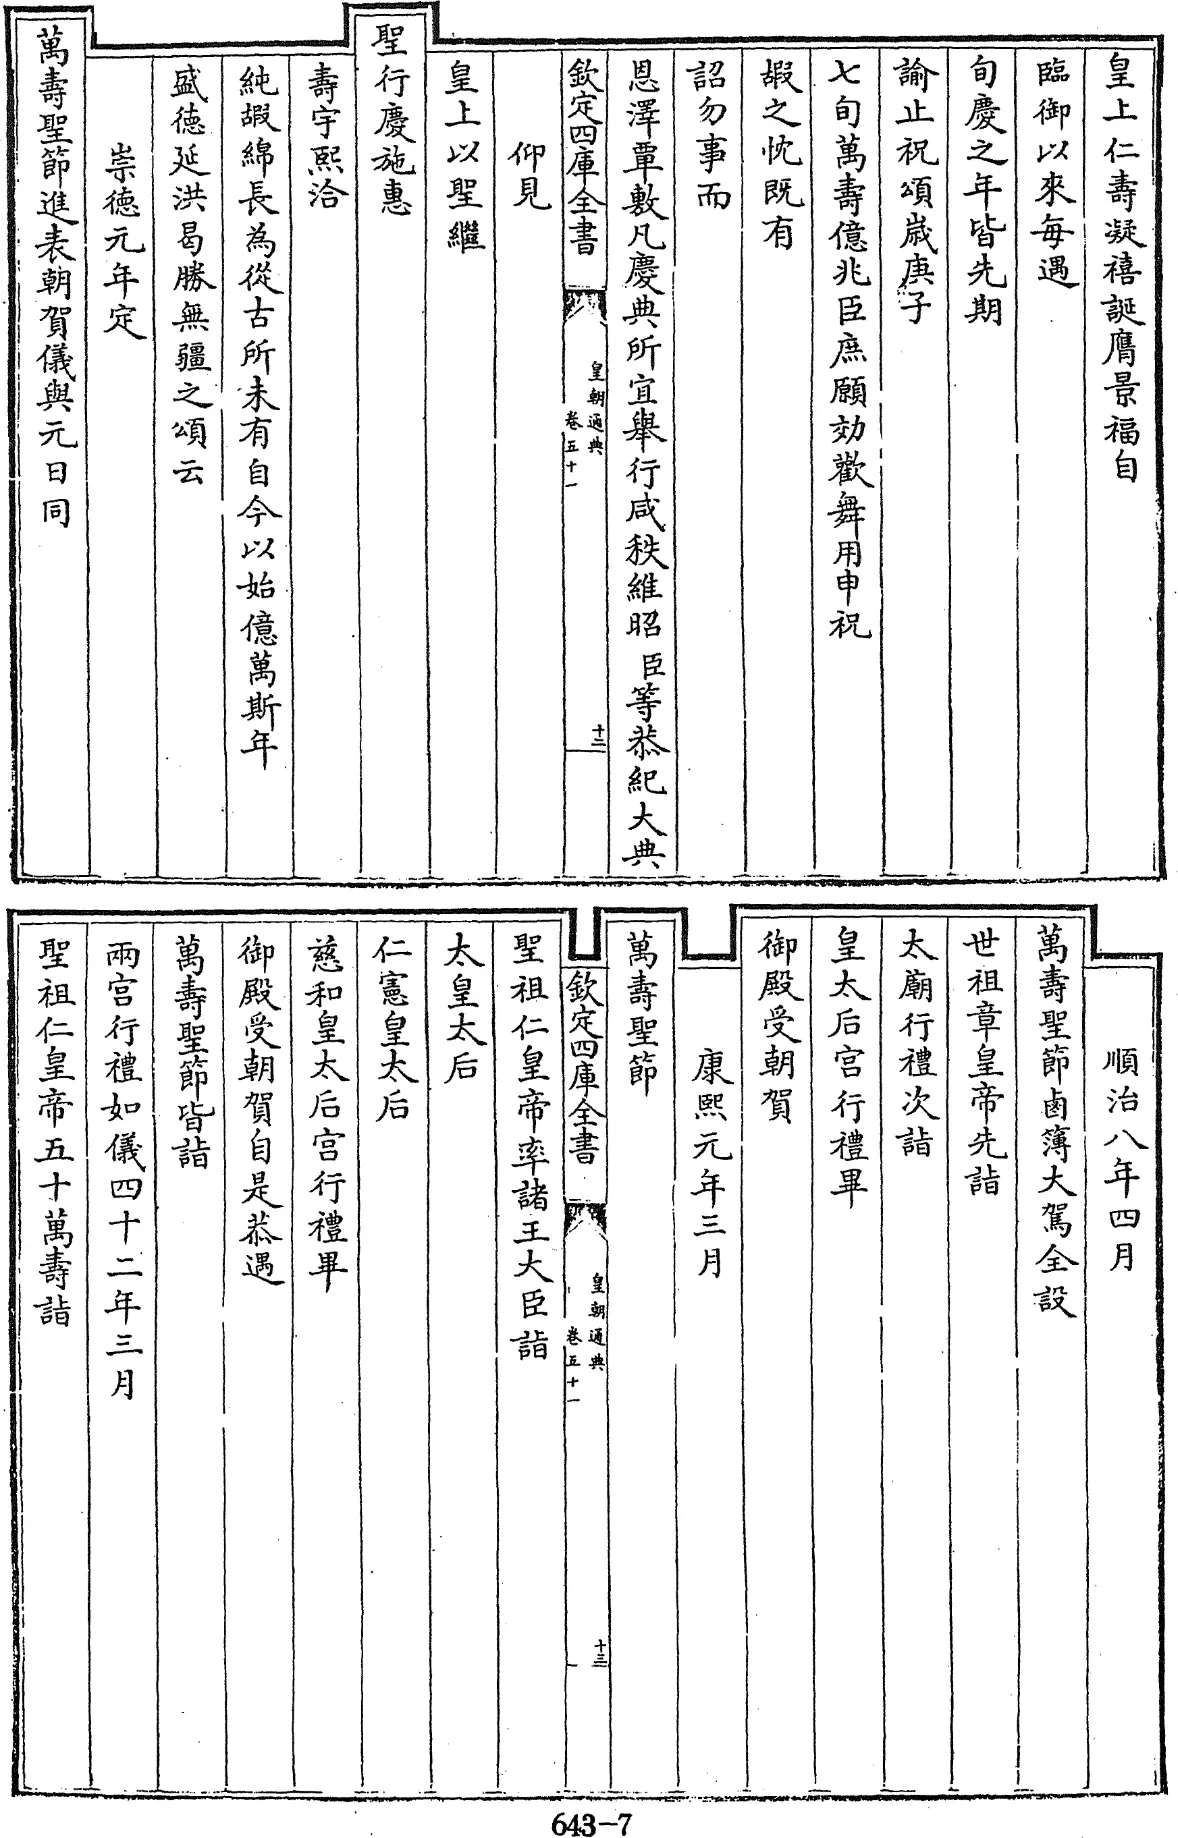 皇上仁壽凝禧誕膺景福自
臨御以來每遇
旬慶之年皆先期
諭止祝頌歲庚子
七旬萬壽億兆臣庶願効歡舞用申祝
嘏之忱既有
詔勿事而
恩澤覃敷凡慶典所宜舉行咸秩維昭臣等恭紀大典
欽定四庫全書
皇朝通典
卷五十一
十二
仰見
皇上以聖繼
聖行慶施惠
壽宇熙洽
純嘏綿長為從古所未有自今以始億萬斯年
盛德延洪曷勝無疆之頌云
崇德元年定
萬壽聖節進表朝賀儀與元日同
順治八年四月
萬壽聖節鹵簿大駕全設
世祖章皇帝先詣
太廟行禮次詣
皇太后宫行禮畢
御殿受朝賀
康熙元年三月
萬壽聖節
欽定四庫全書
皇朝通典
卷五十一
十三
聖祖仁皇帝率諸王大臣詣
太皇太后
仁憲皇太后
慈和皇太后宫行禮畢
御殿受朝賀自是恭遇
萬壽聖節皆詣
兩宫行禮如儀四十二年三月
聖祖仁皇帝五十萬壽詣
643-7